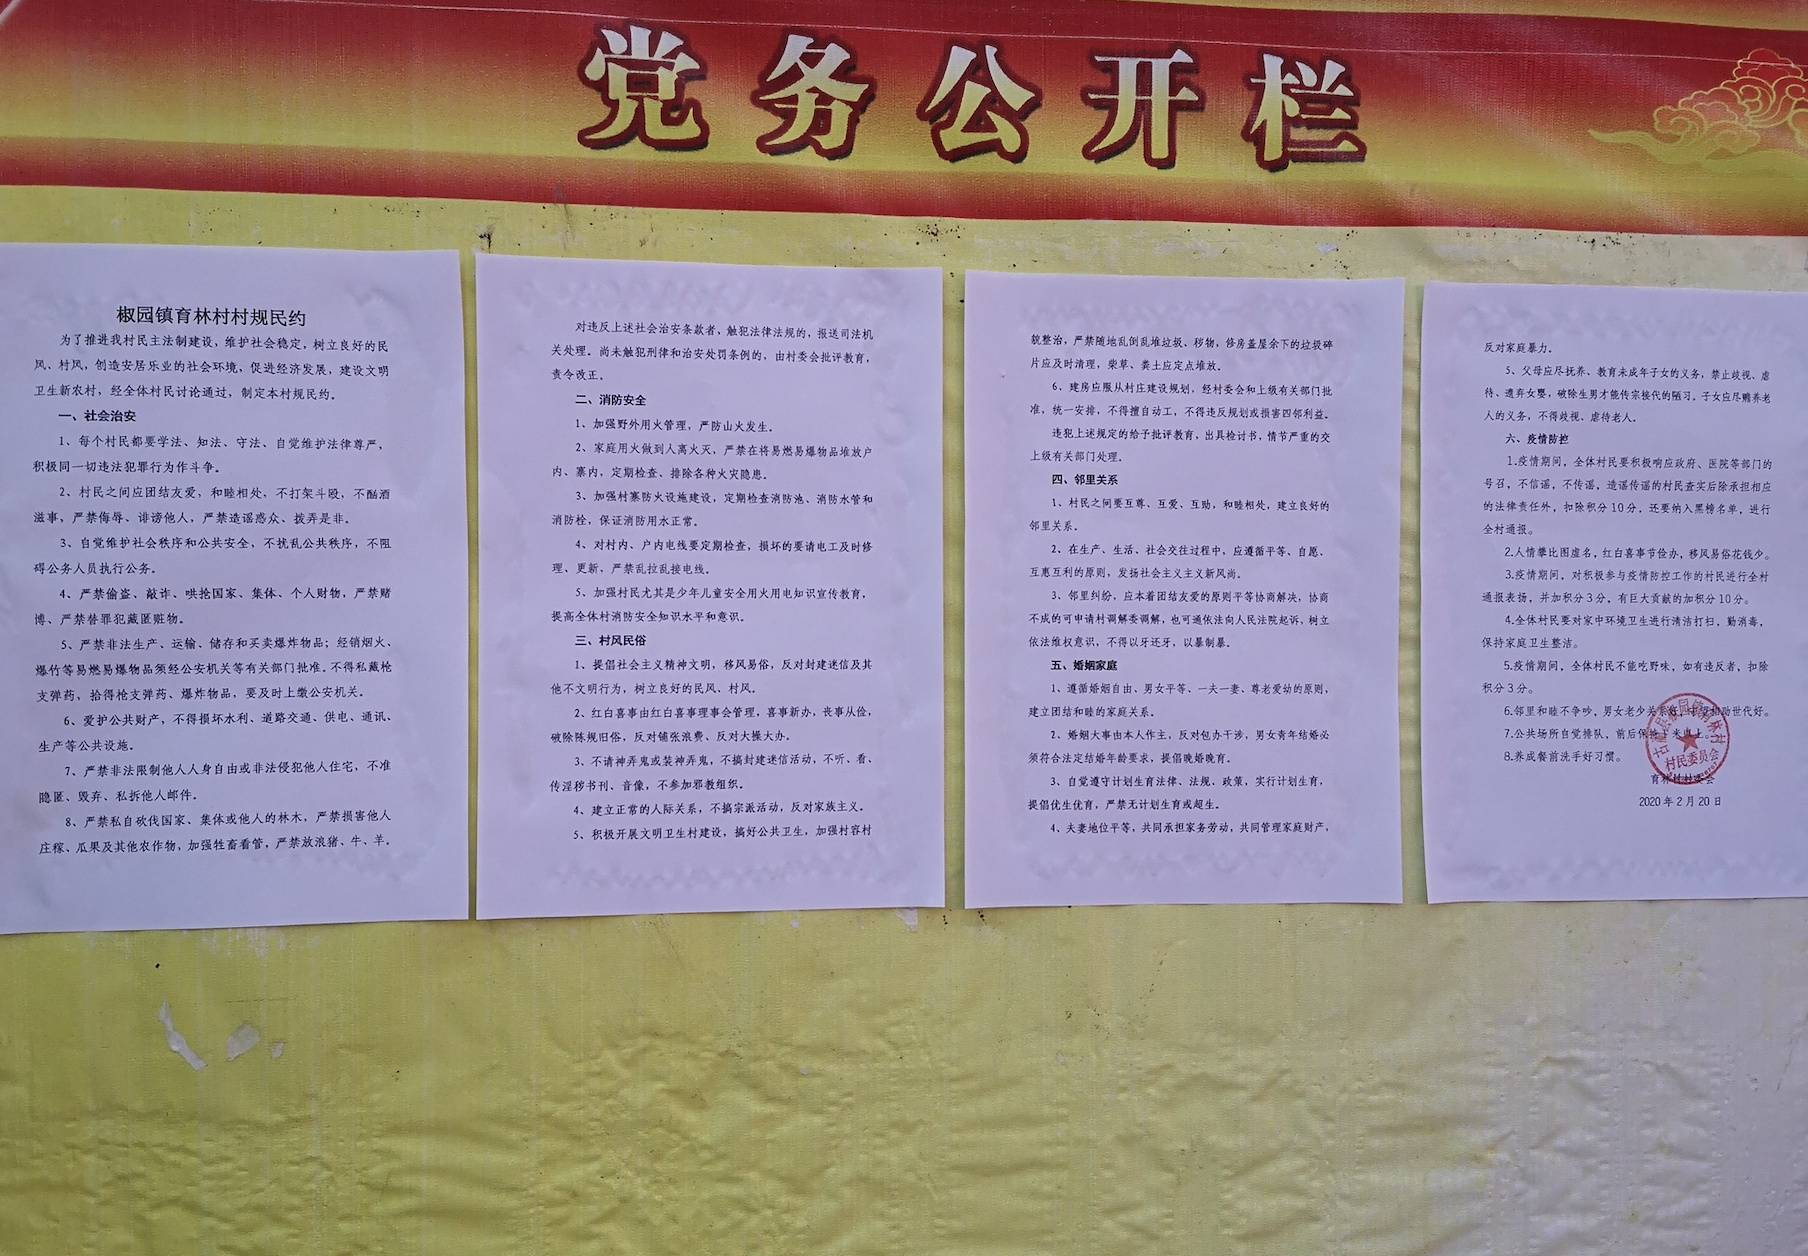 党务公开栏
椒园镇育林村村规民约
为了推进我村民主法制建设，维护社会稳定，树立良好的民
风、村风，创造安居乐业的社会环境，促进经济发展，建设文明
卫生新农村，经全体村民讨论通过，制定本村规民约。
一、社会治安
1、每个村民都要学法、知法、守法、自觉维护法律尊严，
积极同一切违法犯罪行为作斗争。
2、村民之间应团结友爱，和睦相处，不打架斗殴，不酗酒
滋事，严禁侮辱、诽谤他人，严禁造谣惑众、拨弄是非。
3、自觉维护社会秩序和公共安全，不扰乱公共秩序，不阻
碍公务人员执行公务。
4、严禁偷盗、敲诈、哄抢国家、集体、个人财物，严禁赌
博、严禁替罪犯藏匿赃物。
5、严禁非法生产、运输、储存和买卖爆炸物品；经销烟火、
爆竹等易燃易爆物品须经公安机关等有关部门批准。不得私藏枪
支弹药，拾得枪支弹药、爆炸物品，要及时上缴公安机关。
6、爱护公共财产，不得损坏水利、道路交通、供电、通讯、
生产等公共设施。
7、严禁非法限制他人人身自由或非法侵犯他人住宅，不准
隐匿、毁弃、私拆他人邮件。
8、严禁私自砍伐国家、集体或他人的林木，严禁损害他人
庄稼、瓜果及其他农作物，加强牲畜看管，严禁放浪猪、牛、羊。
对违反上述社会治安条款者，触犯法律法规的，报送司法机
关处理。尚未触犯刑律和治安处罚条例的，由村委会批评教育，
责令改正。
二、消防安全
1、加强野外用火管理，严防山火发生。
2、家庭用火做到人离火灭，严禁在将易燃易爆物品堆放户
内、寨内，定期检查、排除各种火灾隐患。
3、加强村寨防火设施建设，定期检查消防池、消防水管和
消防栓，保证消防用水正常。
4、对村内、户内电线要定期检查，损坏的要请电工及时修
理、更新，严禁乱拉乱接电线。
5、加强村民尤其是少年儿童安全用火用电知识宣传教育，
提高全体村消防安全知识水平和意识。
三、村风民俗
1、提倡社会主义精神文明，移风易俗，反对封建迷信及其
他不文明行为，树立良好的民风、村风。
2、红白喜事由红白喜事理事会管理，喜事新办，丧事从俭，
破除陈规旧俗，反对铺张浪费、反对大操大办。
3、不请神弄鬼或装神弄鬼，不搞封建迷信活动，不听、看、
传淫秽书刊、音像，不参加邪教组织。
4、建立正常的人际关系，不搞宗派活动，反对家族主义。
5、积极开展文明卫生村建设，搞好公共卫生，加强村容村
貌整治，严禁随地乱倒乱堆垃圾、秽物，修房盖屋余下的垃圾碎
片应及时清理，柴草、粪土应定点堆放。
6、建房应服从村庄建设规划，经村委会和上级有关部门批
准，统一安排，不得擅自动工，不得违反规划或损害四邻利益。
违犯上述规定的给予批评教育，出具检讨书，情节严重的交
上级有关部门处理。
四、邻里关系
1、村民之间要互尊、互爱、互助，和睦相处，建立良好的
邻里关系。
2、在生产、生活、社会交往过程中，应遵循平等、自愿、
互惠互利的原则，发扬社会主义主义新风尚。
3、邻里纠纷，应本着团结友爱的原则平等协商解决，协商
不成的可申请村调解委调解，也可通依法向人民法院起诉，树立
依法维权意识，不得以牙还牙，以暴制暴。
五、婚姻家庭
1、遵循婚姻自由、男女平等、一夫一妻、尊老爱幼的原则，
建立团结和睦的家庭关系。
2、婚姻大事由本人作主，反对包办干涉，男女青年结婚必
须符合法定结婚年龄要求，提倡晚婚晚育。
3、自觉遵守计划生育法律、法规、政策，实行计划生育，
提倡优生优育，严禁无计划生育或超生。
4、夫妻地位平等，共同承担家务劳动，共同管理家庭财产，
反对家庭暴力。
5、父母应尽抚养、教育未成年子女的义务，禁止歧视、虐
待、遗弃女婴，破除生男才能传宗接代的陋习。子女应尽赡养老
人的义务，不得歧视、虐待老人。
六、疫情防控
1.疫情期间，全体村民要积极响应政府、医院等部门的
号召，不信谣，不传谣，造谣传谣的村民查实后除承担相应
的法律责任外，扣除积分10分，还要纳入黑榜名单，进行
全村通报。
2.人情攀比图虚名，红白喜事节俭办，移风易俗花钱少。
3.疫情期间，对积极参与疫情防控工作的村民进行全村
通报表扬，并加积分3分，有巨大贡献的加积分10分。
4.全体村民要对家中环境卫生进行清洁打扫，勤消毒，
保持家庭卫生整洁。
5.疫情期间，全体村民不能吃野味，如有违反者，扣除
积分3分。
6.邻里和睦不争吵，男女老少关系好，守望相助世代好。
7.公共场所自觉排队，前后保持1米以上。
8.养成餐前洗手好习惯。
育林村村委会
2020年2月20日
村民委员会